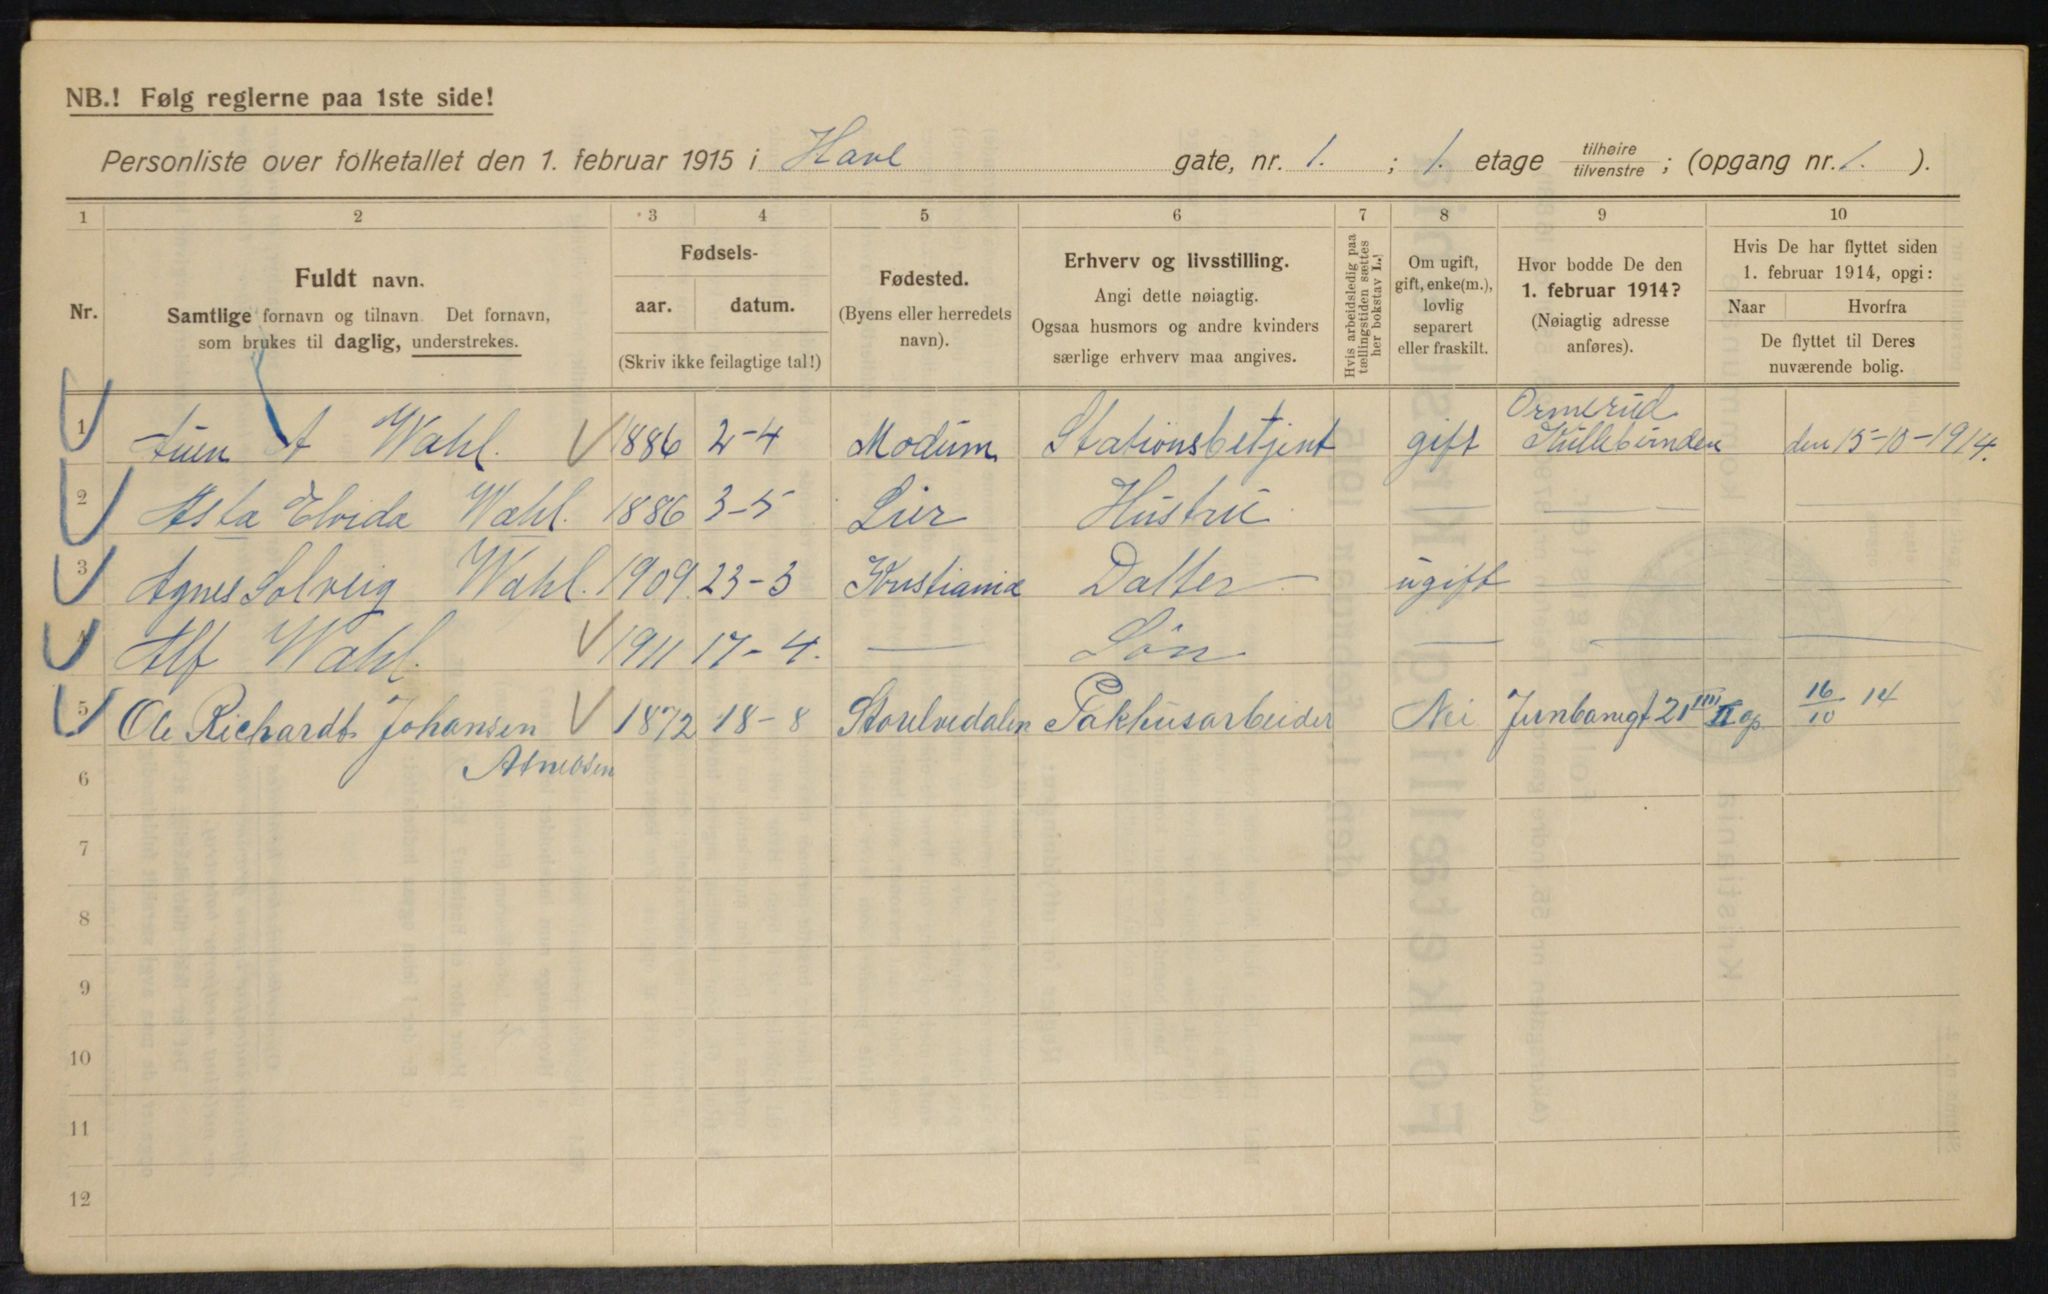 NB.! Følg reglerne paa 1ste side!
Personliste over folketallet den 1. februar 1915 i Havl gate, nr. 1. ; 1. etage tilhøire / tilvenstre ; (opgang nr. 1. ).
1 2 3 4 5 6 7 8 9 10
Nr.
Fuldt navn.
Samtlige fornavn og tilnavn. Det fornavn,
som brukes til daglig, understrekes.
Fødsels-
aar. datum.
(Skriv ikke feilagtige tal!)
Fødested.
(Byens eller herredets
navn).
Erhverv og livsstilling.
Angi dette nøiagtig.
Ogsaa husmors og andre kvinders
særlige erhverv maa angives.
Hvis arbeidsledig paa
tællingstiden sættes
her bokstav L.!
Om ugift,
gift, enke(m.),
lovlig
separert
eller fraskilt.
Hvor bodde De den
1. februar 1914?
(Nøiagtig adresse
anføres).
Hvis De har flyttet siden
1. februar 1914, opgi:
Naar Hvorfra
De flyttet til Deres
nuværende bolig.
1 A Wahl. 1886 2-4 Modum Stationsbetjent gift Ormerud den 15-10-1914.
2 Asta Elvida Wahl. 1886 3-5 Lier Hustru — — —
3 Agnes Solveig Wahl. 1909. 23-3 Kristiania Datter ugift — —
4 Alf Wahl. 1911 17-4. — Søn — — —
5 Ole Richardt Johansen 1872 18-8 Storelvedalen Pakhusarbeider Nei Jernbanegt 21 II op. 16/10 14
6
7
8
9
10
11
12